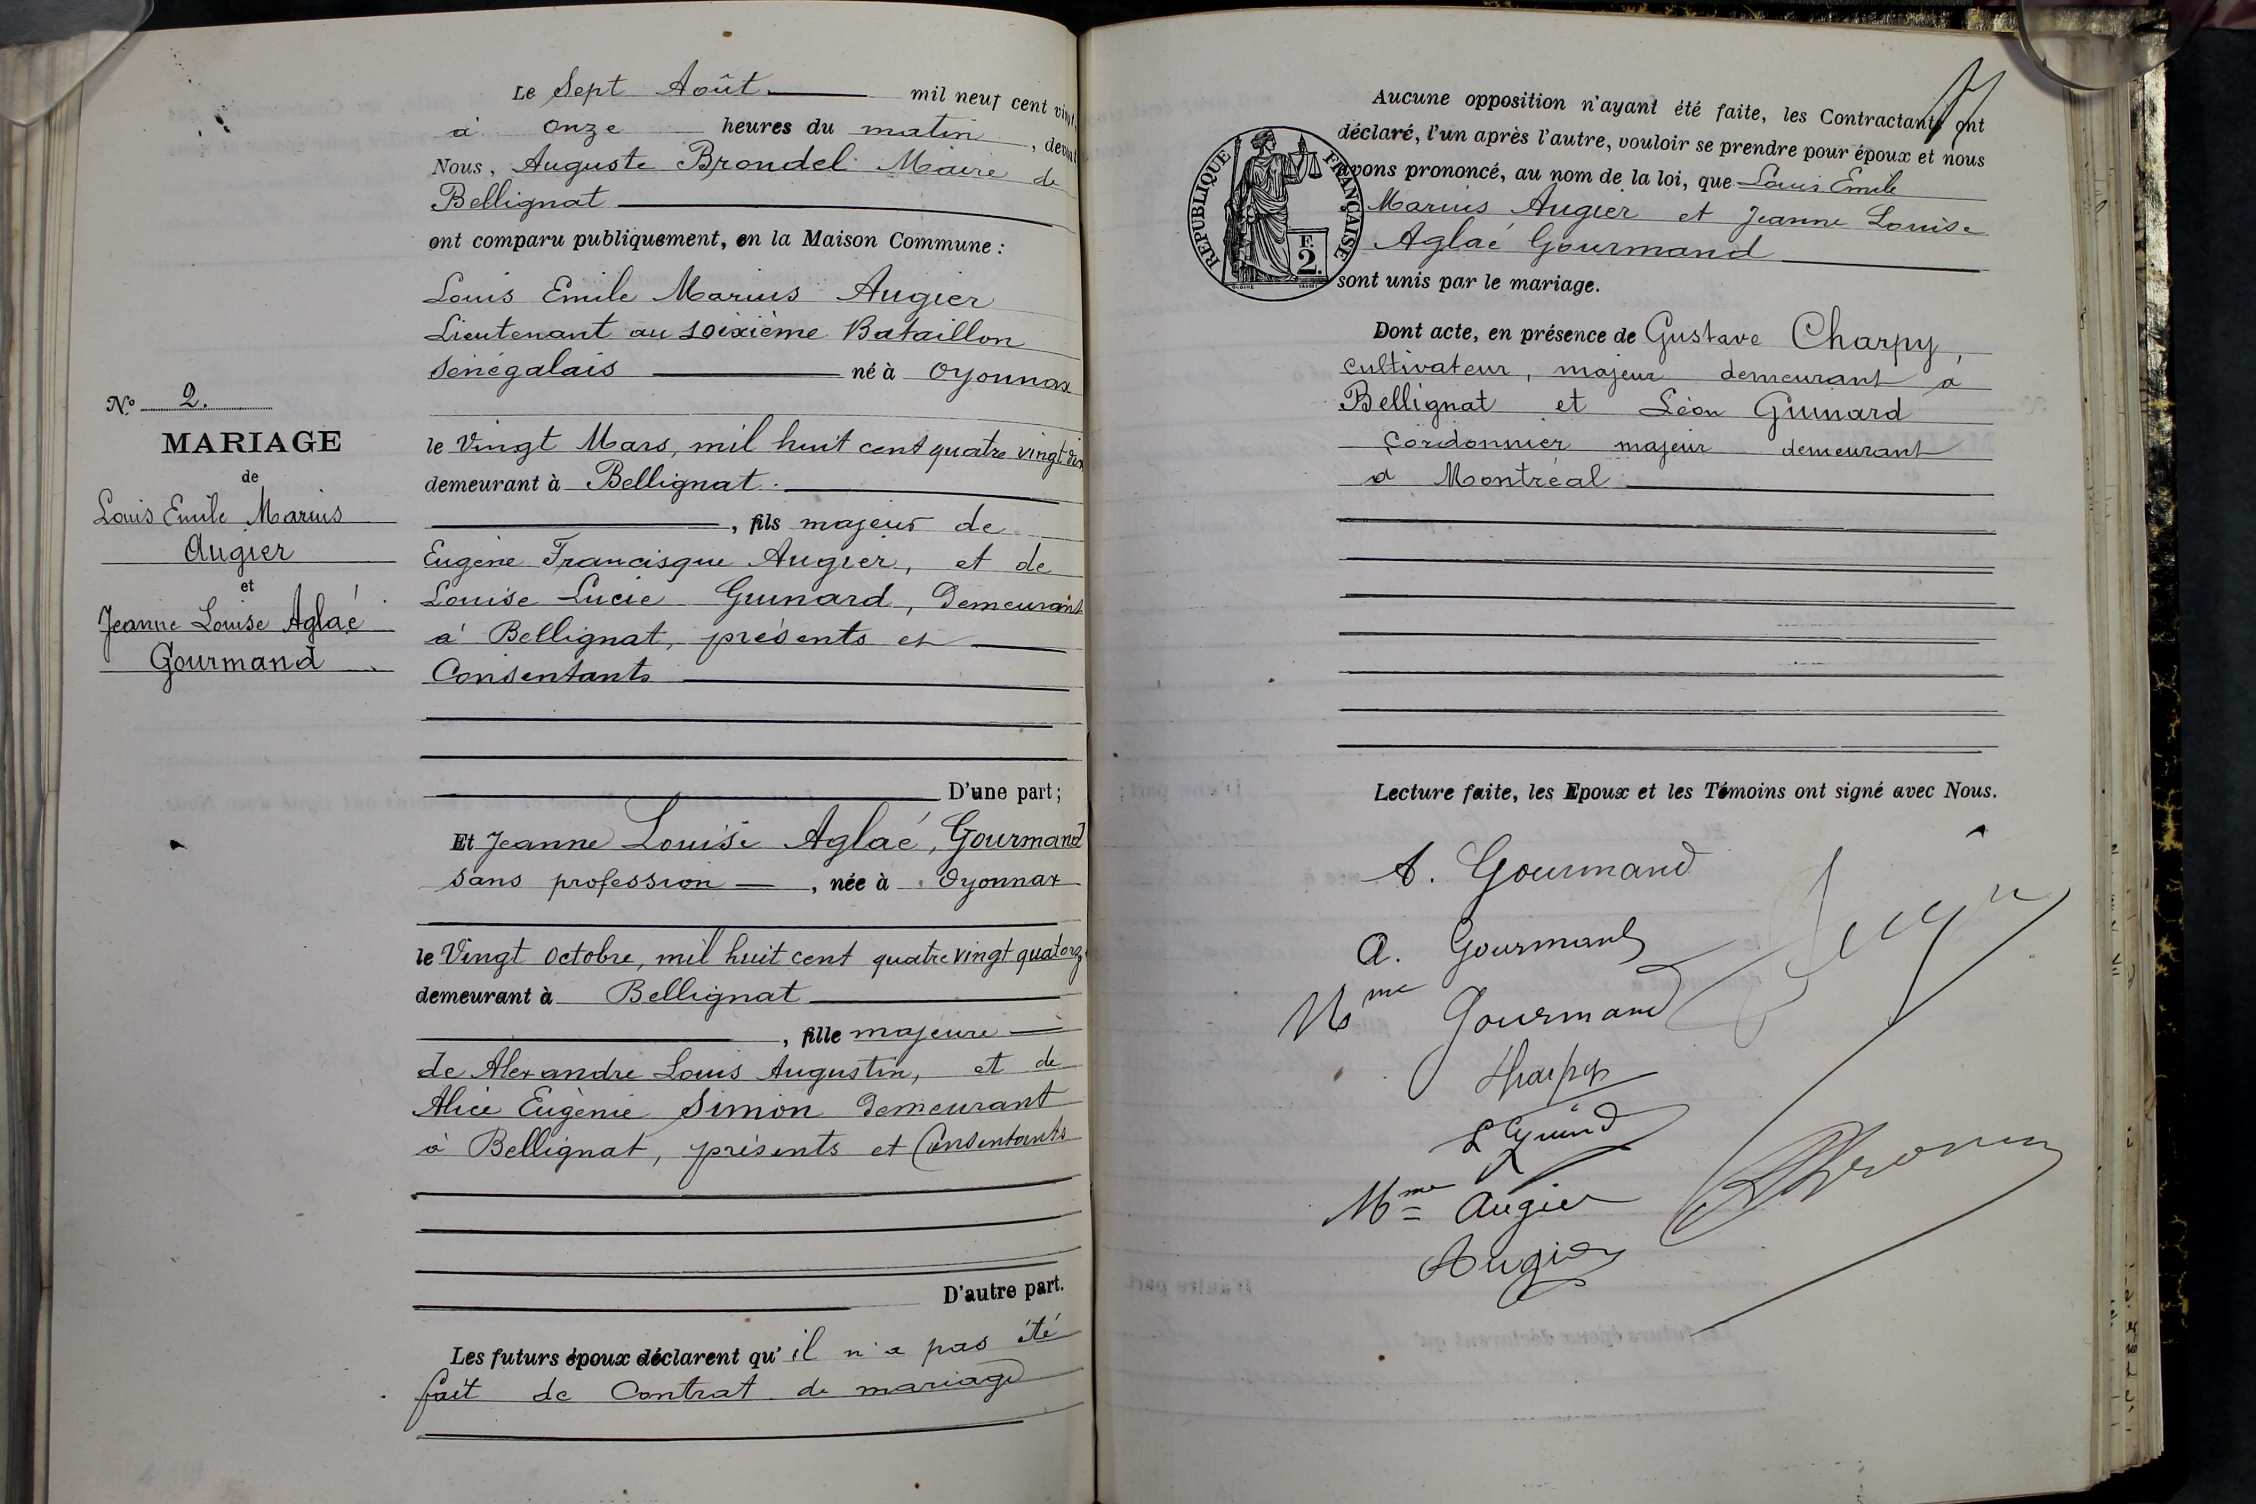 Le Sept Août mil neuf cent vingt
à onze heures du matin, devant
Nous, Auguste Brondel Maire de
Bellignat
ont comparu publiquement, en la Maison Commune :
Louis Emile Marius Augier
Lieutenant au soixième Bataillon
Sénégalais né à Oyonnax
le Vingt Mars, mil huit cent quatre vingt dix
demeurant à Bellignat.
, fils majeur de
Eugène Francisque Augier, et de
Louise Lucie Guinard, Demeurant
à Bellignat, présents et
Consentants
D'une part ;
Et Jeanne Louise Aglaé, Gourmand
sans profession, née à Oyonnax
le Vingt octobre, mil huit cent quatre vingt quatorze
demeurant à Bellignat
, fille majeure
de Alexandre Louis Augustin, et de
Alice Eugènie Simon Demeurant
à Bellignat, présents et Consentants
D'autre part.
Les futurs époux déclarent qu'il n'a pas été
fait de Contrat de mariage
N° 2.
MARIAGE
de
Louis Emile Marius
Augier
et
Jeanne Louise Aglaé
Gourmand
Aucune opposition n'ayant été faite, les Contractants ont
déclaré, l'un après l'autre, vouloir se prendre pour époux et nous
avons prononcé, au nom de la loi, que Louis Emile
Marius Augier et Jeanne Louise
Aglaé Gourmand
sont unis par le mariage.
REPUBLIQUE FRANÇAISE
F.
2.
Dont acte, en présence de Gustave Charpy,
cultivateur, majeur demeurant à
Bellignat et Léon Guinard
Cordonnier majeur demeurant
à Montréal
Lecture faite, les Epoux et les Témoins ont signé avec Nous.
A. Gourmand
a. Gourmand
Mme Gourmand
Charpy
Mme Augier
Augier